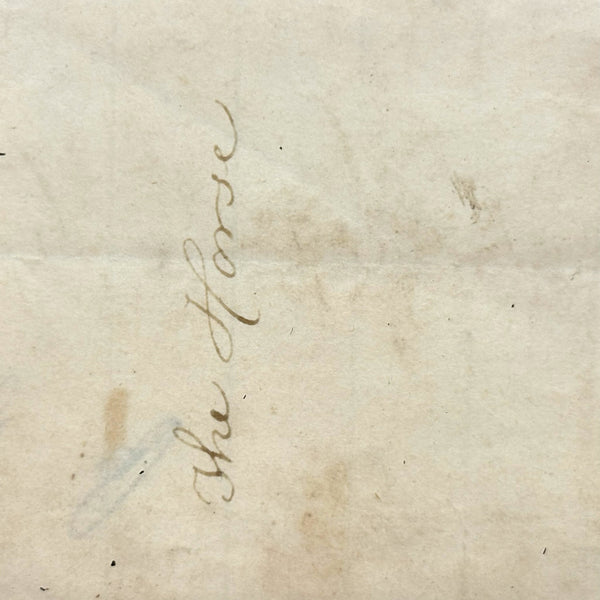 The Horse